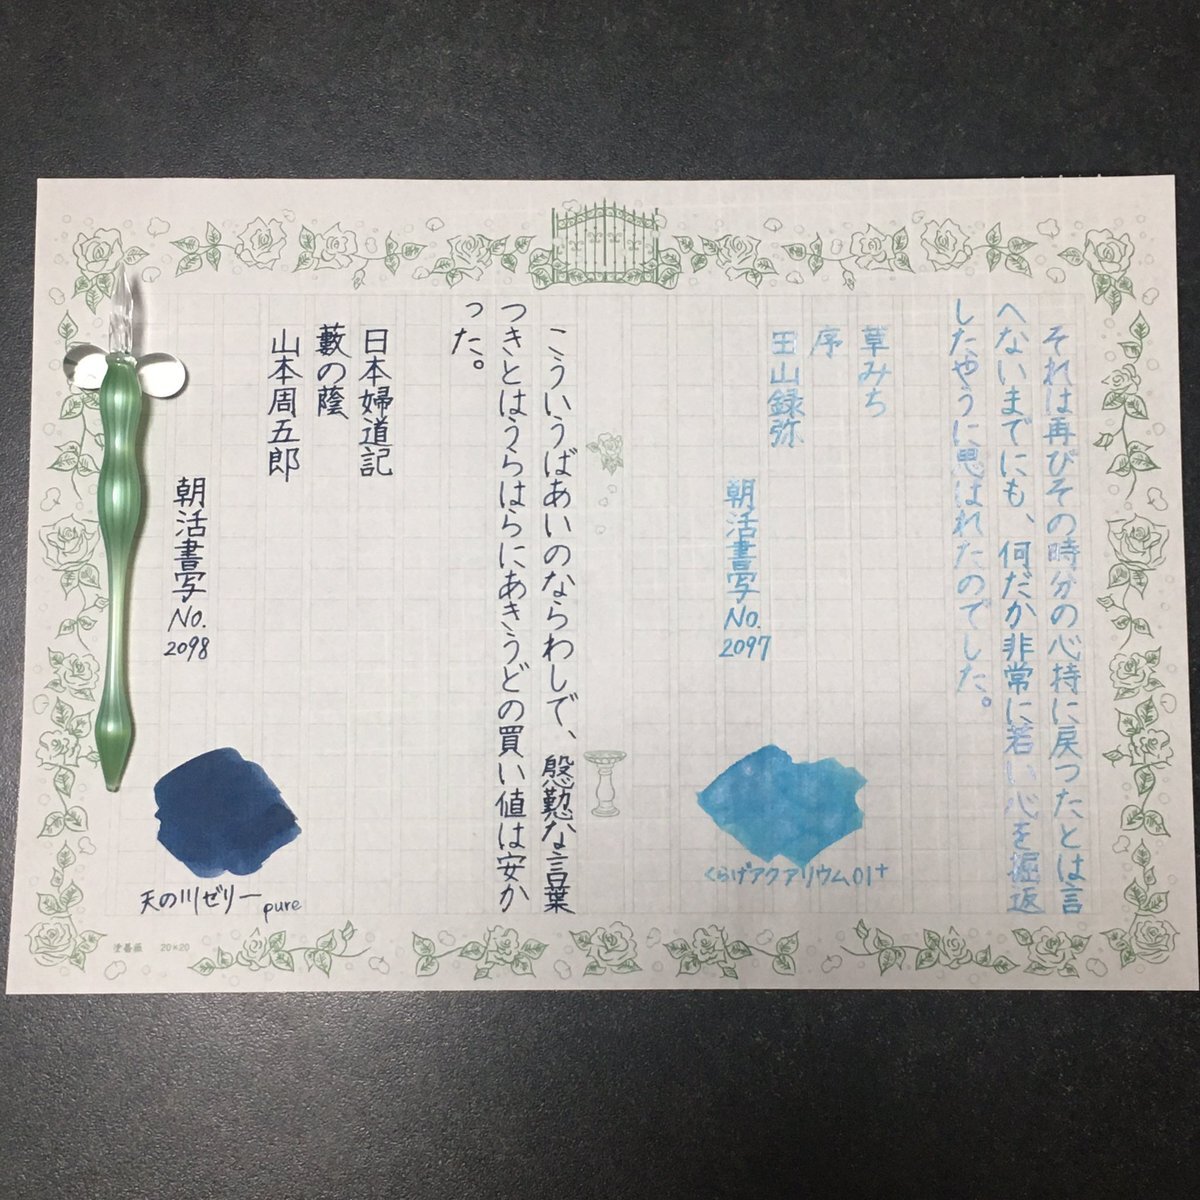 それは再びその時分の心持に戻つたとは言
へないまでにも、何だか非常に若い心を掘返
したやうに思はれたのでした。
草みち
序
田山録弥
朝活書写
No.
2097
くらげアクアリウム01+
こういうばあいのならわしで、慇懃な言葉
つきとはうらはらにあきうどの買い値は安か
った。
日本婦道記
藪の蔭
山本周五郎
朝活書写
No.
2098
天の川ゼリー
pure
20×20